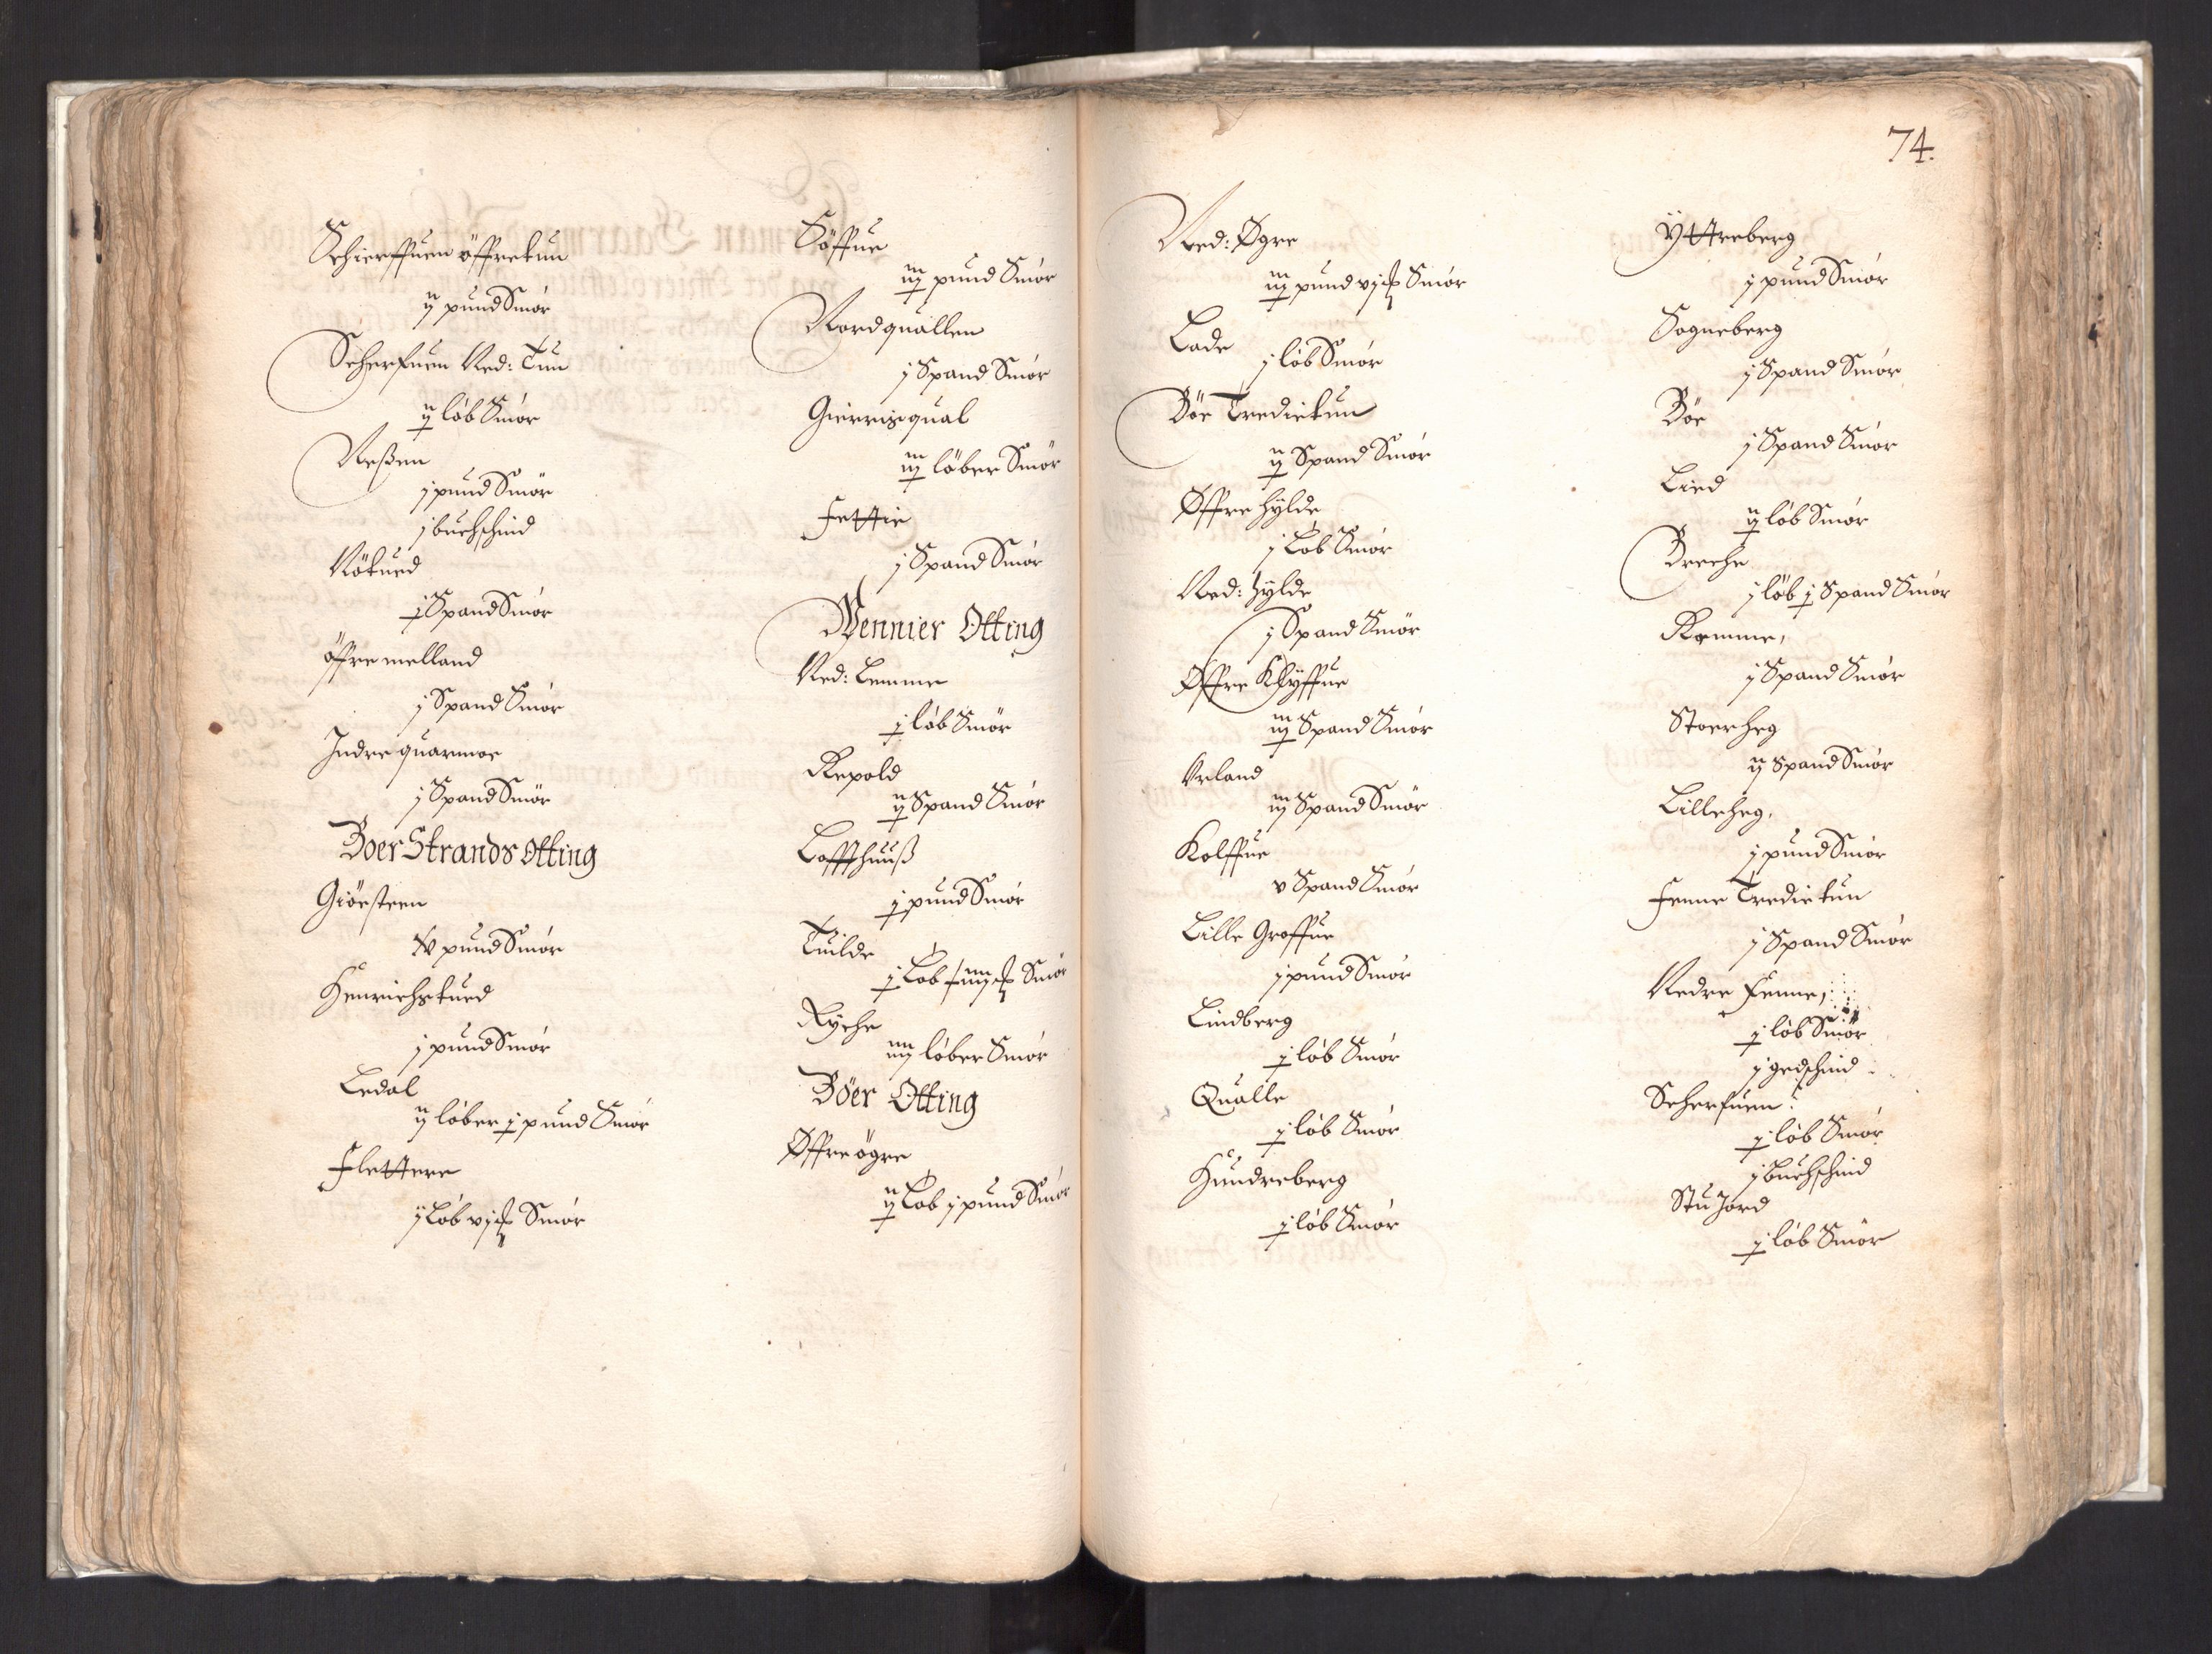 Schierffuen öffretun
ij pund Smör
Scherfuen Ned: Tun
ij löb Smör
Neßen
j pund Smör
j buchschind
Nökued
j Spand Smör
öffre melland
j Spand Smör
Indre quarmoe
j Spand Smör
Boer Strands Otting
Giörsteen
pund Smör
Henrichstued
j pund Smör
Ledal
ij löber j pund Smör
Flettere
ij löb vj Smör
Söffue
iij pund Smör
Nordquallen
j Spand Smör
Gierrisqual
iij löber Smör
Fettie
j Spand Smör
Wennier Otting
Ned: Lemme
j löb Smör
Repold
ij Spand Smör
Loffthuuß
j pund Smör
Tuilde
j Löb Smör
Ryche
iiij löber Smör
Böer Otting
Øffre ögre
ij Löb j pund Smör
74.
Ned: Øgre
iij pund vj Smör
Lade
j löb Smör
Böe Tredietun
ij Spand Smör
Øffre hylde
j Löb Smör
Ned: hylde
j Spand Smör
Øffre Klyffue
iij Spand Smör
Vrland
iij Spand Smör
Kolffue
v Spand Smör
Lille Groffue
j pund Smör
Lindberg
j löb Smör
Qualle
j löb Smör
Hundreberg
j löb Smör
Yttreberg
j pund Smör
Sogneberg
j Spand Smör
Böe
j Spand Smör
Lied
ij löb Smör
Breche
j löb j Spand Smör
Romme,
j Spand Smör
Stoerheg
ij Spand Smör
Lilleheg,
j pund Smör
Fenne Tredietun
j Spand Smör
Nedre Fenne,
j löb Smör
j gedschind
Scherfuen
j löb Smör
j Buchschind
Stu Jord
j löb Smör